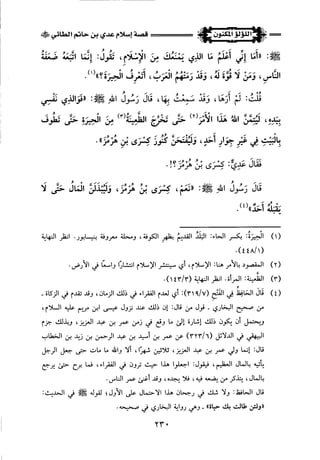 اللؤلؤ المكنون
قصة إسلام عدي بن حاتم الطائي
ﷺ: «أما إني أعلم ما الذي يمنعك من الإسلام، تقول: إنما اتبعه ضعفة
الناس، ومن لا قوة له، وقد رمتهم العرب، أتعرف الحيرة(١)؟»
قلت: لم أرها، وقد سمعت بها، قال رسول الله ﷺ: «فوالذي نفسي
بيده، ليتمن الله هذا الأمر(٢) حتى تخرج الظعينة(٣) من الحيرة حتى تطوف
بالبيت في غير جوار أحد، وليفتحن كنوز كسرى بن هرمز».
فقال عدي: كسرى بن هرمز؟!
قال رسول الله ﷺ: «نعم، كسرى بن هرمز، وليبذلن المال حتى لا
يقبله أحد»(٤).
(١) الحيرة: بكسر الحاء: البلد القديم بظهر الكوفة، ومحلة معروفة بنيسابور. انظر النهاية
(٤٤٨/١)
(٢) المقصود بالأمر هنا: الإسلام، أي سينتشر الإسلام انتشارا واسعا في الأرض.
(٣) الظعينة: المرأة. انظر النهاية (١٤٣/٣)
(٤) قال الحافظ في الفتح (٣١٩/٧): أي لعدم الفقراء في ذلك الزمان، وقد تقدم في الزكاة
من الصحيح قول من قال: إن ذلك عند نزول عيسى بن مريم عليه السلام،
ويحتمل أن يكون ذلك إشارة إلى ما وقع في زمن عمر بن عبد العزيز، وبذلك جزم
البيهقي في الدلائل (٣٢٣/٦) عن عمر بن أسيد بن عبد الرحمن بن زيد بن الخطاب
قال: إنما ولي عمر بن عبد العزيز، ثلاثين شهرا، ألا والله ما مات حتى جعل الرجل
يأتيه بالمال العظيم، فيقول: اجعلوا هذا حيث ترون في الفقراء، فما يبرح حتى يرجع
بماله، يتذكر من يضعه فيه، فلا يجده، وقد أغنى عمر الناس.
قال الحافظ: ولا شك في رجحان هذا الاحتمال على الأول، لقوله ﷺ في الحديث:
«ولئن طالت بك حياة» - وهي رواية البخاري في صحيحه.
٢٣٠